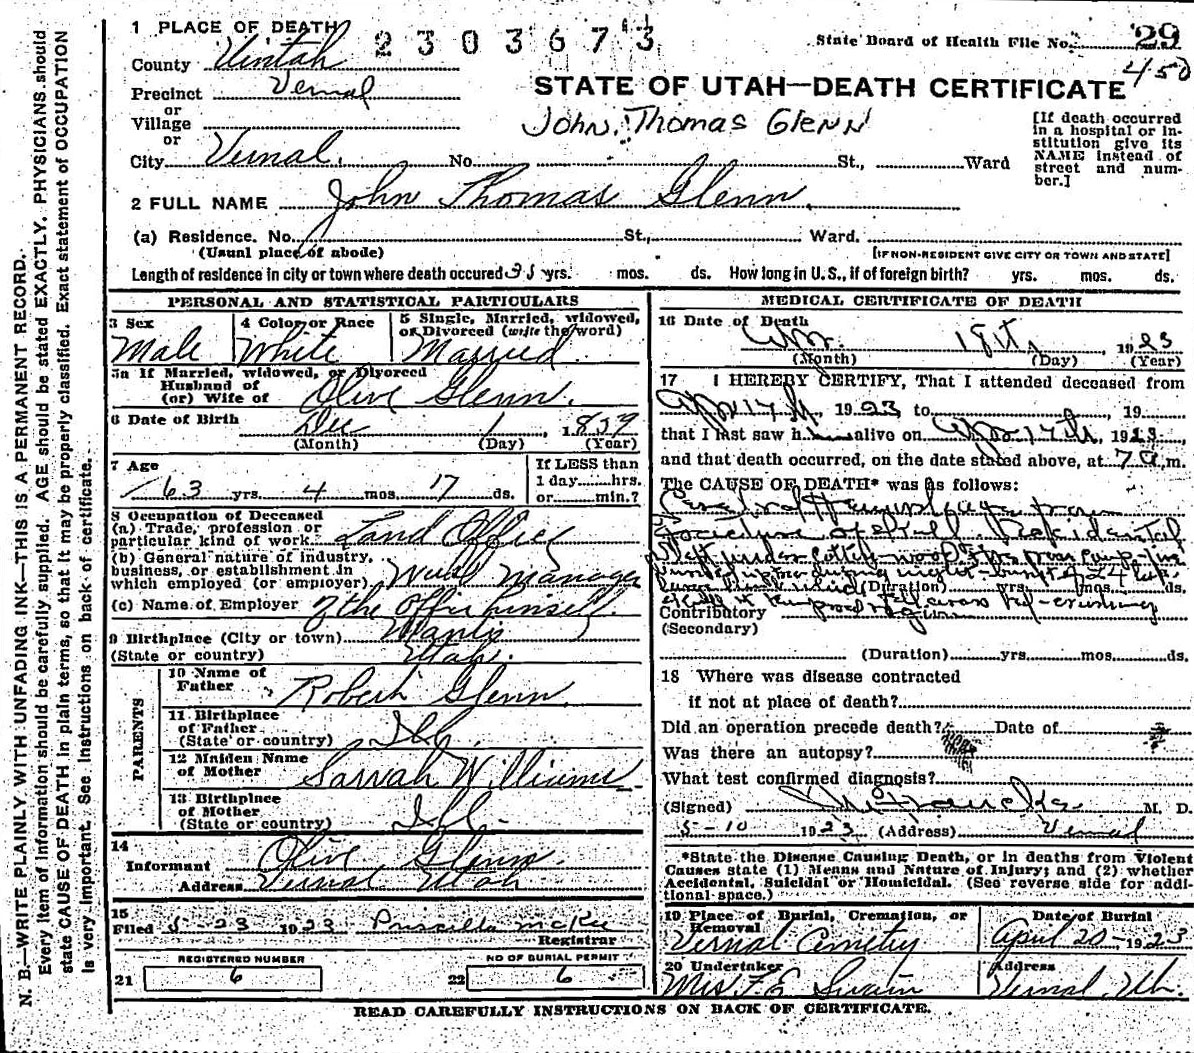 N. B.—WRITE PLAINLY WITH UNFADING INK—THIS IS A PERMANENT RECORD.
Every item of information should be carefully supplied. AGE should be stated EXACTLY. PHYSICIANS should
state CAUSE OF DEATH in plain terms, so that it may be properly classified. Exact statement of OCCUPATION
is very important. See instructions on back of certificate.
1 PLACE OF DEATH
2303673
State Board of Health File No. 29
450
County Uintah
Precinct Vernal
or
Village
or
City Vernal. No. St., Ward
STATE OF UTAH—DEATH CERTIFICATE
John Thomas Glenn
[If death occurred
in a hospital or in-
stitution give its
NAME instead of
street and num-
ber.]
2 FULL NAME John Thomas Glenn.
(a) Residence. No. St., Ward.
(Usual place of abode) [IF NON-RESIDENT GIVE CITY OR TOWN AND STATE]
Length of residence in city or town where death occured 35 yrs. mos. ds. How long in U.S., if of foreign birth? yrs. mos. ds.
PERSONAL AND STATISTICAL PARTICULARS
3 Sex
Male
4 Color or Race
White
5 Single, Married, widowed,
or Divorced (write the word)
Married.
5a If Married, widowed, or Divorced
Husband of
(or) Wife of Olive Glenn.
6 Date of Birth Dec 1, 1859
(Month) (Day) (Year)
7 Age
63 yrs. 4 mos. 17 ds.
If LESS than
1 day hrs.
or min.?
8 Occupation of Deceased
(a) Trade, profession or
particular kind of work. Land Office
(b) General nature of industry,
business, or establishment in
which employed (or employer). Manager
(c) Name of Employer of the office himself.
9 Birthplace (City or town) Manti
(State or country) Utah.
PARENTS
10 Name of
Father Robert Glenn.
11 Birthplace
of Father
(State or country) Ill.
12 Maiden Name
of Mother Sarrah Williams
13 Birthplace
of Mother
(State or country) Ill.
14
Informant Olive Glenn.
Address Vernal Utah
15
Filed 5-23 1923 Priscilla McKee
Registrar
REGISTERED NUMBER
21 6
NO OF BURIAL PERMIT
22 6
MEDICAL CERTIFICATE OF DEATH
16 Date of Death
Apr. 18th, 1923
(Month) (Day) (Year)
17 I HEREBY CERTIFY, That I attended deceased from
Apr 17th, 1923 to , 19
that I last saw h alive on Apr 17th, 1923,
and that death occurred, on the date stated above, at 7 a.m.
The CAUSE OF DEATH* was as follows:
Cerebral Hemorrhage from
fracture of skull. Accidental
(Duration) yrs. mos. ds.
Contributory
(Secondary)
(Duration) yrs. mos. ds.
18 Where was disease contracted
if not at place of death?
Did an operation precede death? Date of
Was there an autopsy?
What test confirmed diagnosis?
(Signed) M. D.
5-10 1923 (Address) Vernal
*State the Disease Causing Death, or in deaths from Violent
Causes state (1) Menns and Nature of Injury; and (2) whether
Accidental, Suicidal or Homicidal. (See reverse side for addi-
tional space.)
19 Place of Burial, Cremation, or
Removal
Vernal Cemetry
Date of Burial
April 20-1923
20 Undertaker
Mrs F. E. Swain
Address
Vernal, Uh.
READ CAREFULLY INSTRUCTIONS ON BACK OF CERTIFICATE.